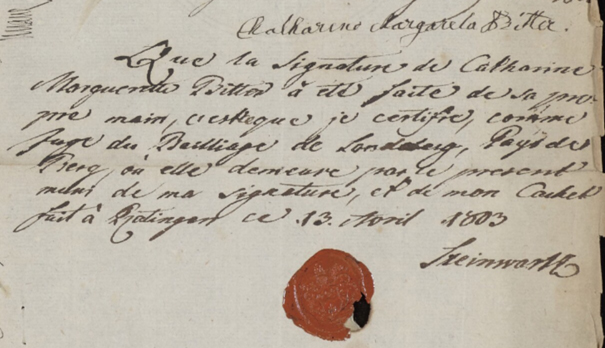 Catharine Margareta Bitter.
Que la Signature de Catharine
Marguerite Bitter à eté faite de sa pro-
pre main, c'estceque je certifie, comme
juge du Bailliage de Landsberg, Païs de
Berg, où elle demeure par le present
muni de ma signature, et de mon Cachet
fait à Ratingen ce 13. Avril 1803
Steinwartz